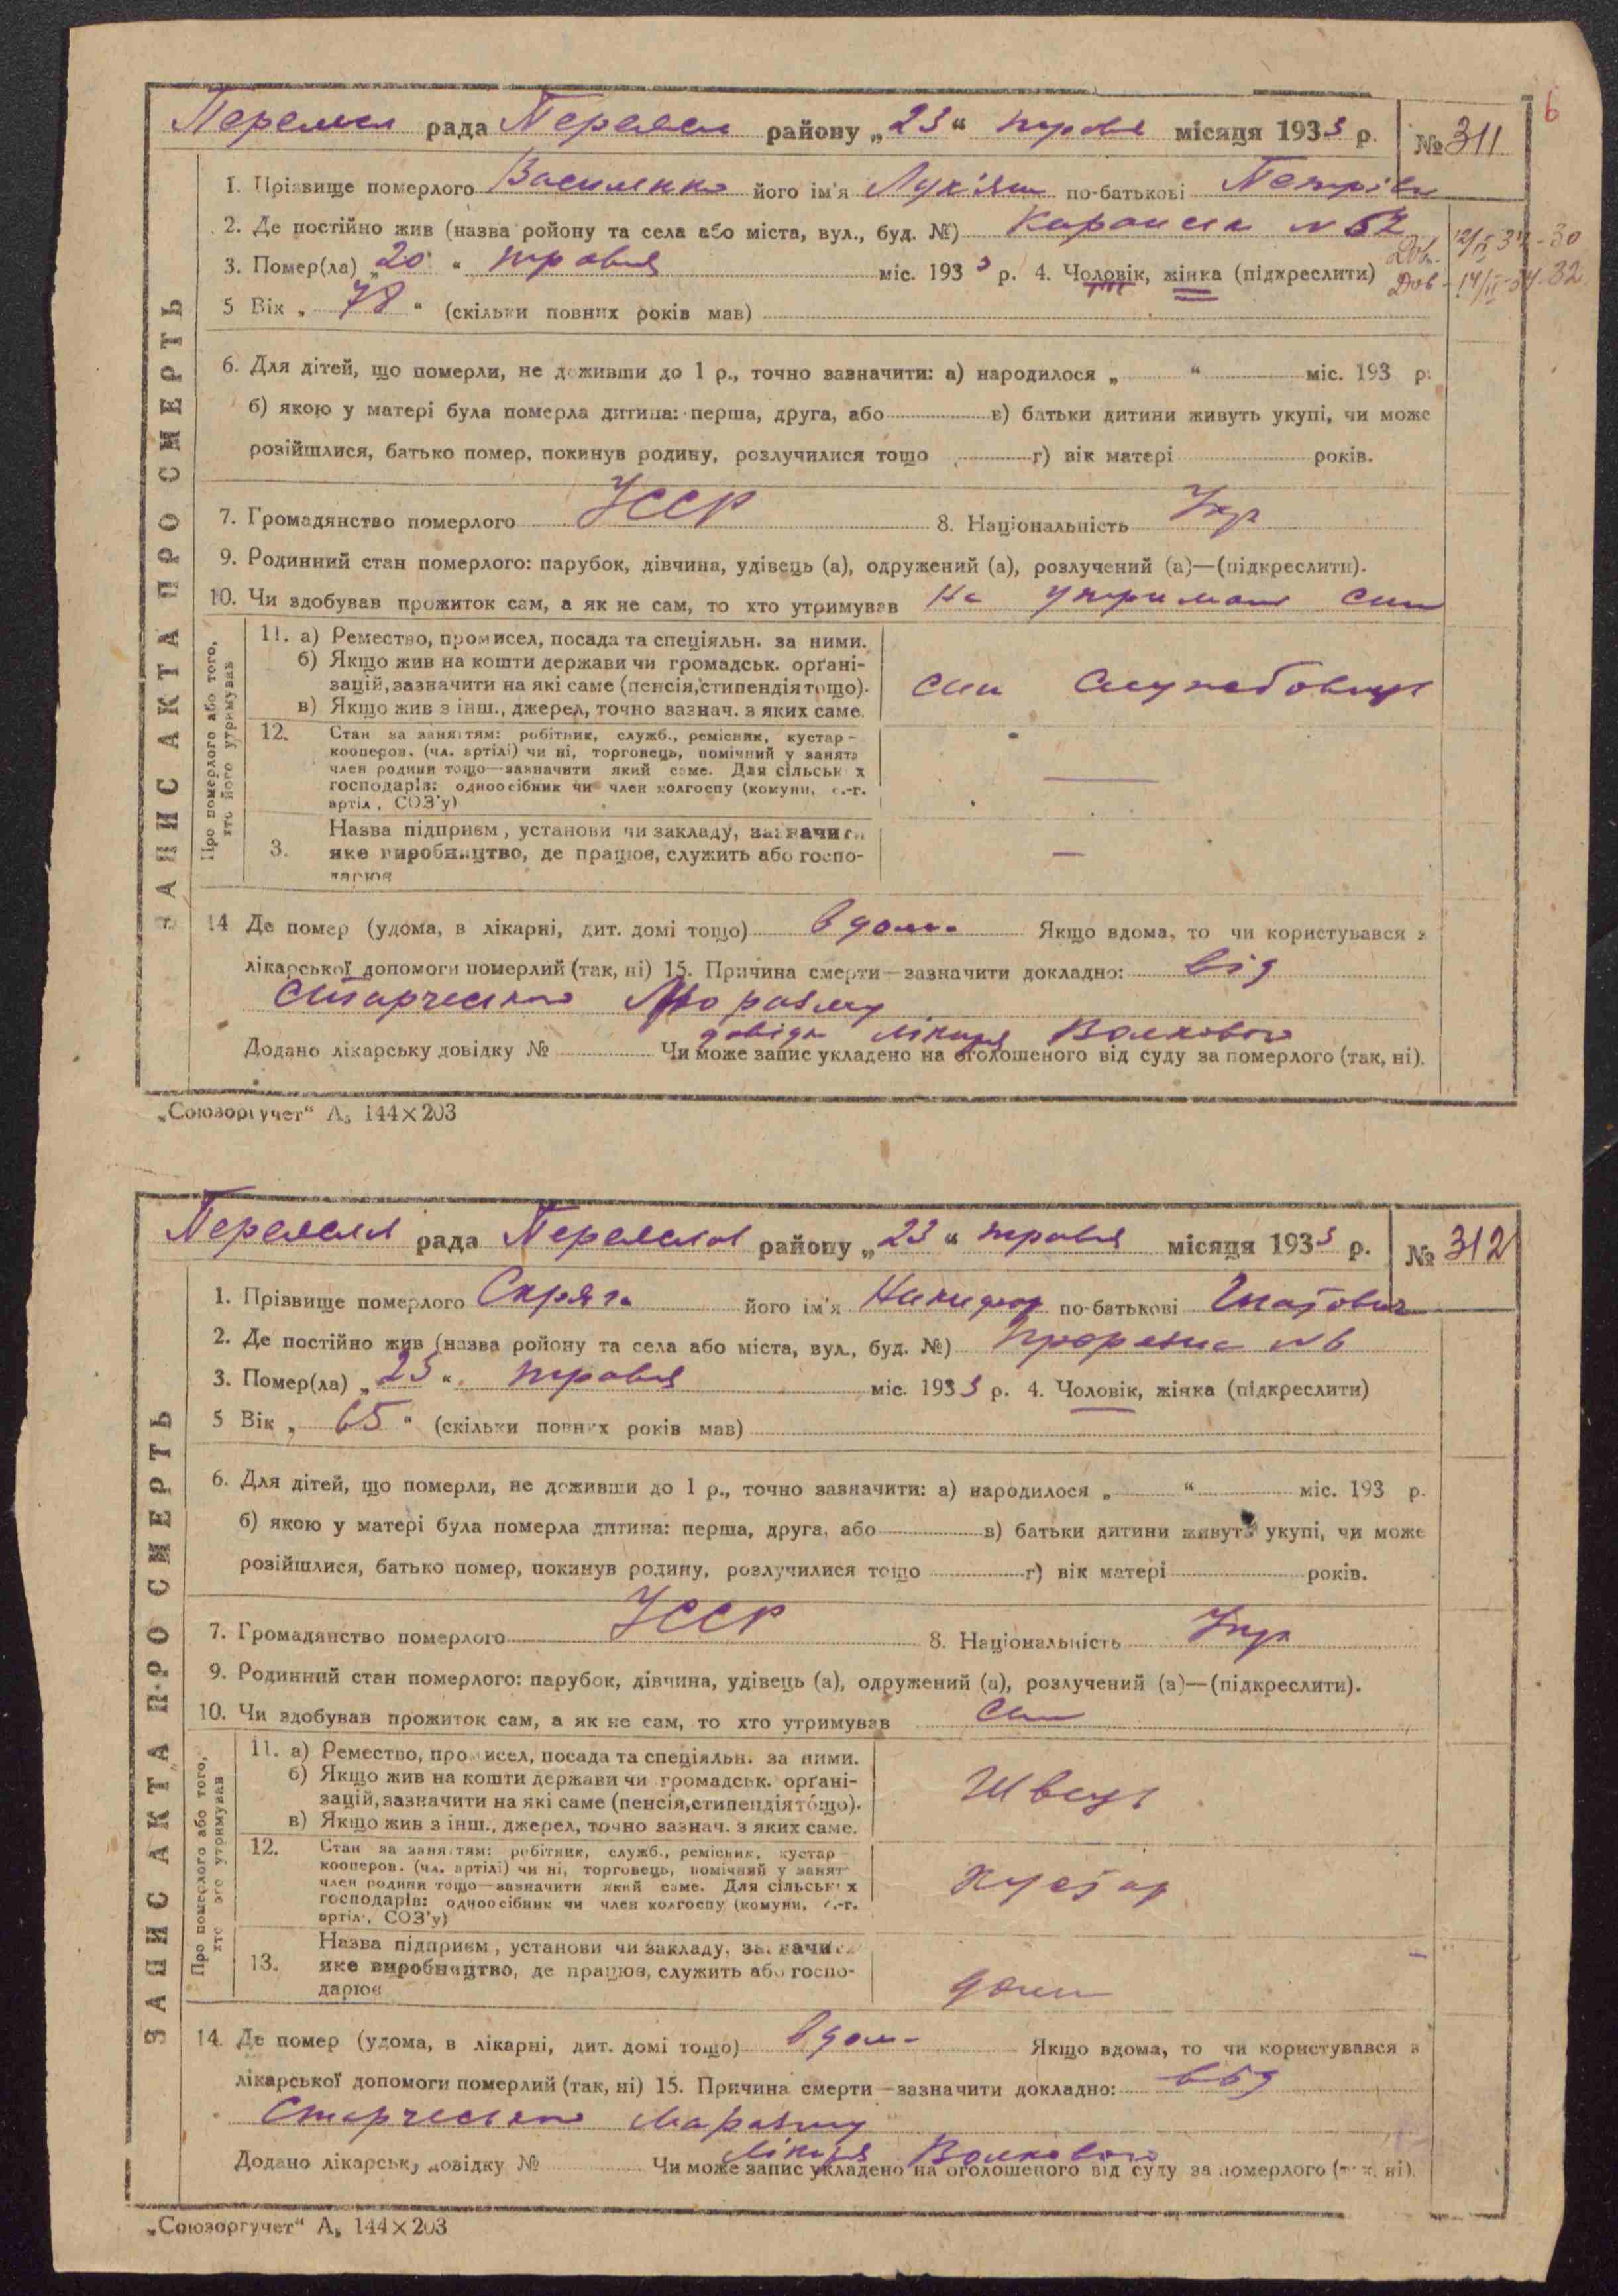 6
Переясл рада Переясл району „23“ травня місяця 1933 р. № 311
ЗАПИС АКТА ПРО СМЕРТЬ
1. Прізвище померлого Василенко його ім'я Лук'ян по-батькові Петрів
2. Де постійно жив (назва ройону та села або міста, вул., буд. №) № 52
3. Помер(ла) „20“ травня міс. 1933 р. 4. Чоловік, жінка (підкреслити)
5 Вік „78“ (скільки повних років мав)
6. Для дітей, що померли, не доживши до 1 р., точно зазначити: а) народилося „ “ міс. 193 р.
б) якою у матері була померла дитина: перша, друга, або в) батьки дитини живуть укупі, чи може
розійшлися, батько помер, покинув родину, розлучилися тощо г) вік матері років.
7. Громадянство померлого УССР 8. Національність Укр
9. Родинний стан померлого: парубок, дівчина, удівець (а), одружений (а), розлучений (а)—(підкреслити).
10. Чи здобував прожиток сам, а як не сам, то хто утримував На утриман син
Про померлого або того, хто його утримував
11. а) Ремество, промисел, посада та спеціяльн. за ними.
б) Якщо жив на кошти держави чи громадськ. орґані-
зацій, зазначити на які саме (пенсія, стипендія тощо).
в) Якщо жив з інш., джерел, точно зазнач. з яких саме.
син Службовець
12. Стан за заняттям: робітник, служб., ремісник, кустар-
кооперов. (чл. артілі) чи ні, торговець, помічний у занят
член родини тощо—зазначити який саме. Для сільськ х
господарів: одноосібник чи член колгоспу (комуни, с.-г.
артіл, СОЗ'у)
—
Назва підприєм, установи чи закладу, зазначити
3. яке виробництво, де працює, служить або госпо-
дарює
—
14 Де помер (удома, в лікарні, дит. домі тощо) вдома Якщо вдома, то чи користувався з
лікарської допомоги померлий (так, ні) 15. Причина смерти—зазначити докладно: від
старческого Моразму
довідк лікаря Волкового
Додано лікарську довідку № Чи може запис укладено на оголошеного від суду за померлого (так, ні).
„Союзоргучет“ А₅ 144×203
Переясл рада Переяслов району „23“ травня місяця 1933 р. № 312
ЗАПИС АКТА ПРО СМЕРТЬ
1. Прізвище померлого Скряга його ім'я Никифор по-батькові Гнатович
2. Де постійно жив (назва ройону та села або міста, вул., буд. №) № 6
3. Помер(ла) „23“ травня міс. 1933 р. 4. Чоловік, жінка (підкреслити)
5 Вік „65“ (скільки повних років мав)
6. Для дітей, що померли, не доживши до 1 р., точно зазначити: а) народилося „ “ міс. 193 р.
б) якою у матері була померла дитина: перша, друга, або в) батьки дитини живуть укупі, чи може
розійшлися, батько помер, покинув родину, розлучилися тощо г) вік матері років.
7. Громадянство померлого УССР 8. Національність Укр
9. Родинний стан померлого: парубок, дівчина, удівець (а), одружений (а), розлучений (а)—(підкреслити).
10. Чи здобував прожиток сам, а як не сам, то хто утримував Сам
Про померлого або того, хто его утримував
11. а) Ремество, промисел, посада та спеціяльн. за ними.
б) Якщо жив на кошти держави чи громадськ. орґані-
зацій, зазначити на які саме (пенсія, стипендія тощо).
в) Якщо жив з інш., джерел, точно зазнач. з яких саме.
Швець
12. Стан за заняттям: робітник, служб., ремісник, кустар
кооперов. (чл. артілі) чи ні, торговець, помічний у занят
член родини тощо—зазначити який саме. Для сільськ х
господарів: одноосібник чи член колгоспу (комуни, с.-г.
артіл, СОЗ'у)
Кустар
Назва підприєм, установи чи закладу, зазначити
13. яке виробництво, де працює, служить або госпо-
дарює
дома
14. Де помер (удома, в лікарні, дит. домі тощо) вдома Якщо вдома, то чи користувався з
лікарської допомоги померлий (так, ні) 15. Причина смерти—зазначити докладно: від
Старческого маразму
Лікаря Волкового
Додано лікарську довідку № Чи може запис укладено на оголошеного від суду за померлого (так, ні).
„Союзоргучет“ А₅ 144×203